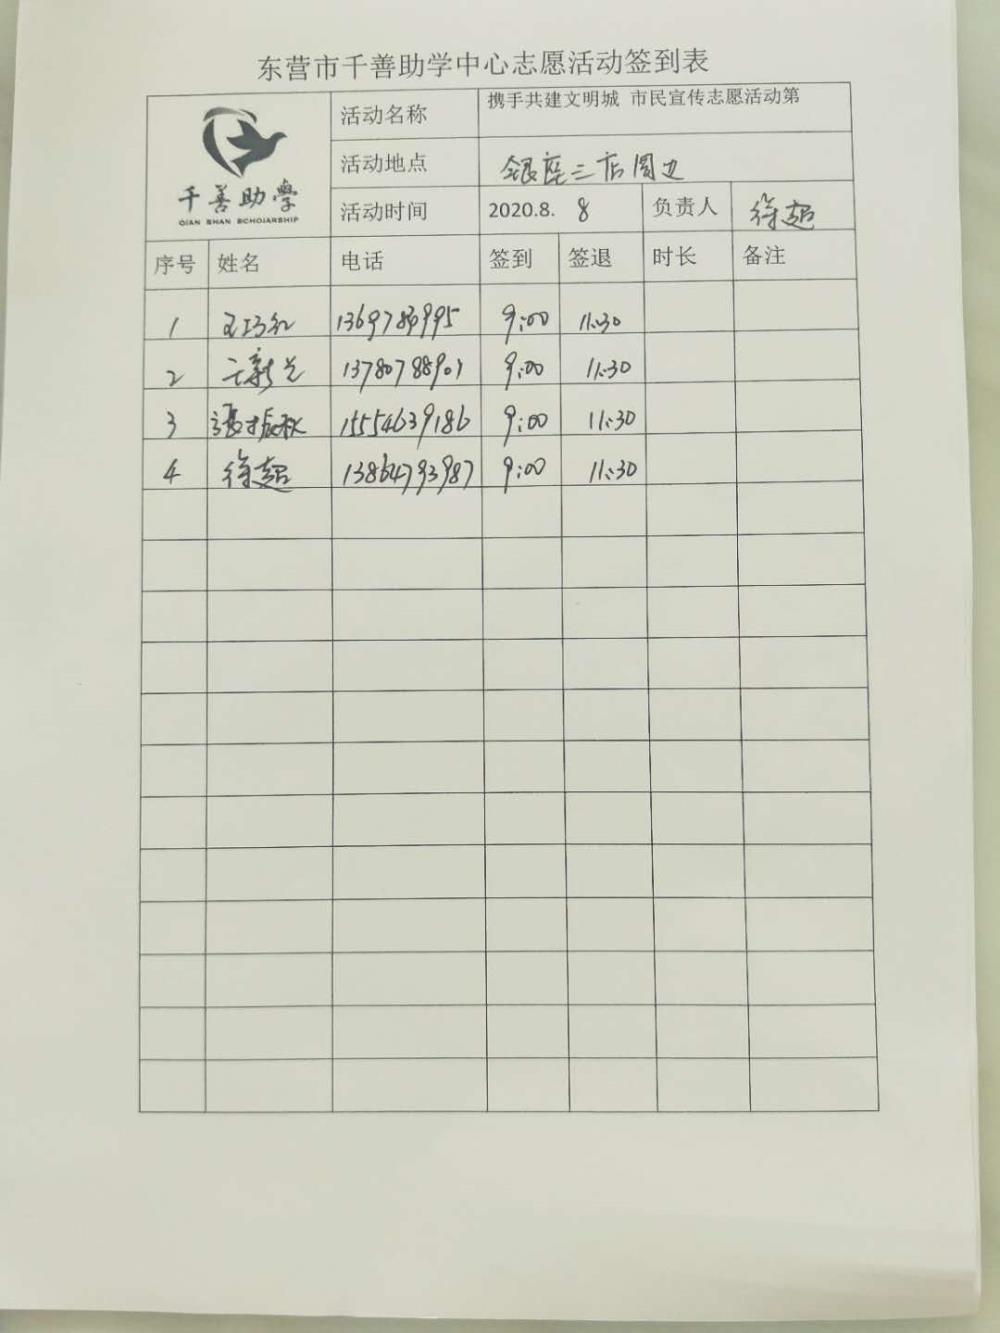 东营市千善助学中心志愿活动签到表
千善助學
QIAN SHAN SCHOIARSHIP
活动名称 携手共建文明城 市民宣传志愿活动第
活动地点 银座三店周边
活动时间 2020.8. 8 负责人 徐超
序号 姓名 电话 签到 签退 时长 备注
1 王巧红 9:00 11:30
2 新兰 13780788901 9:00 11:30
3 张振秋 15554639186 9:00 11:30
4 徐超 13864793987 9:00 11:30